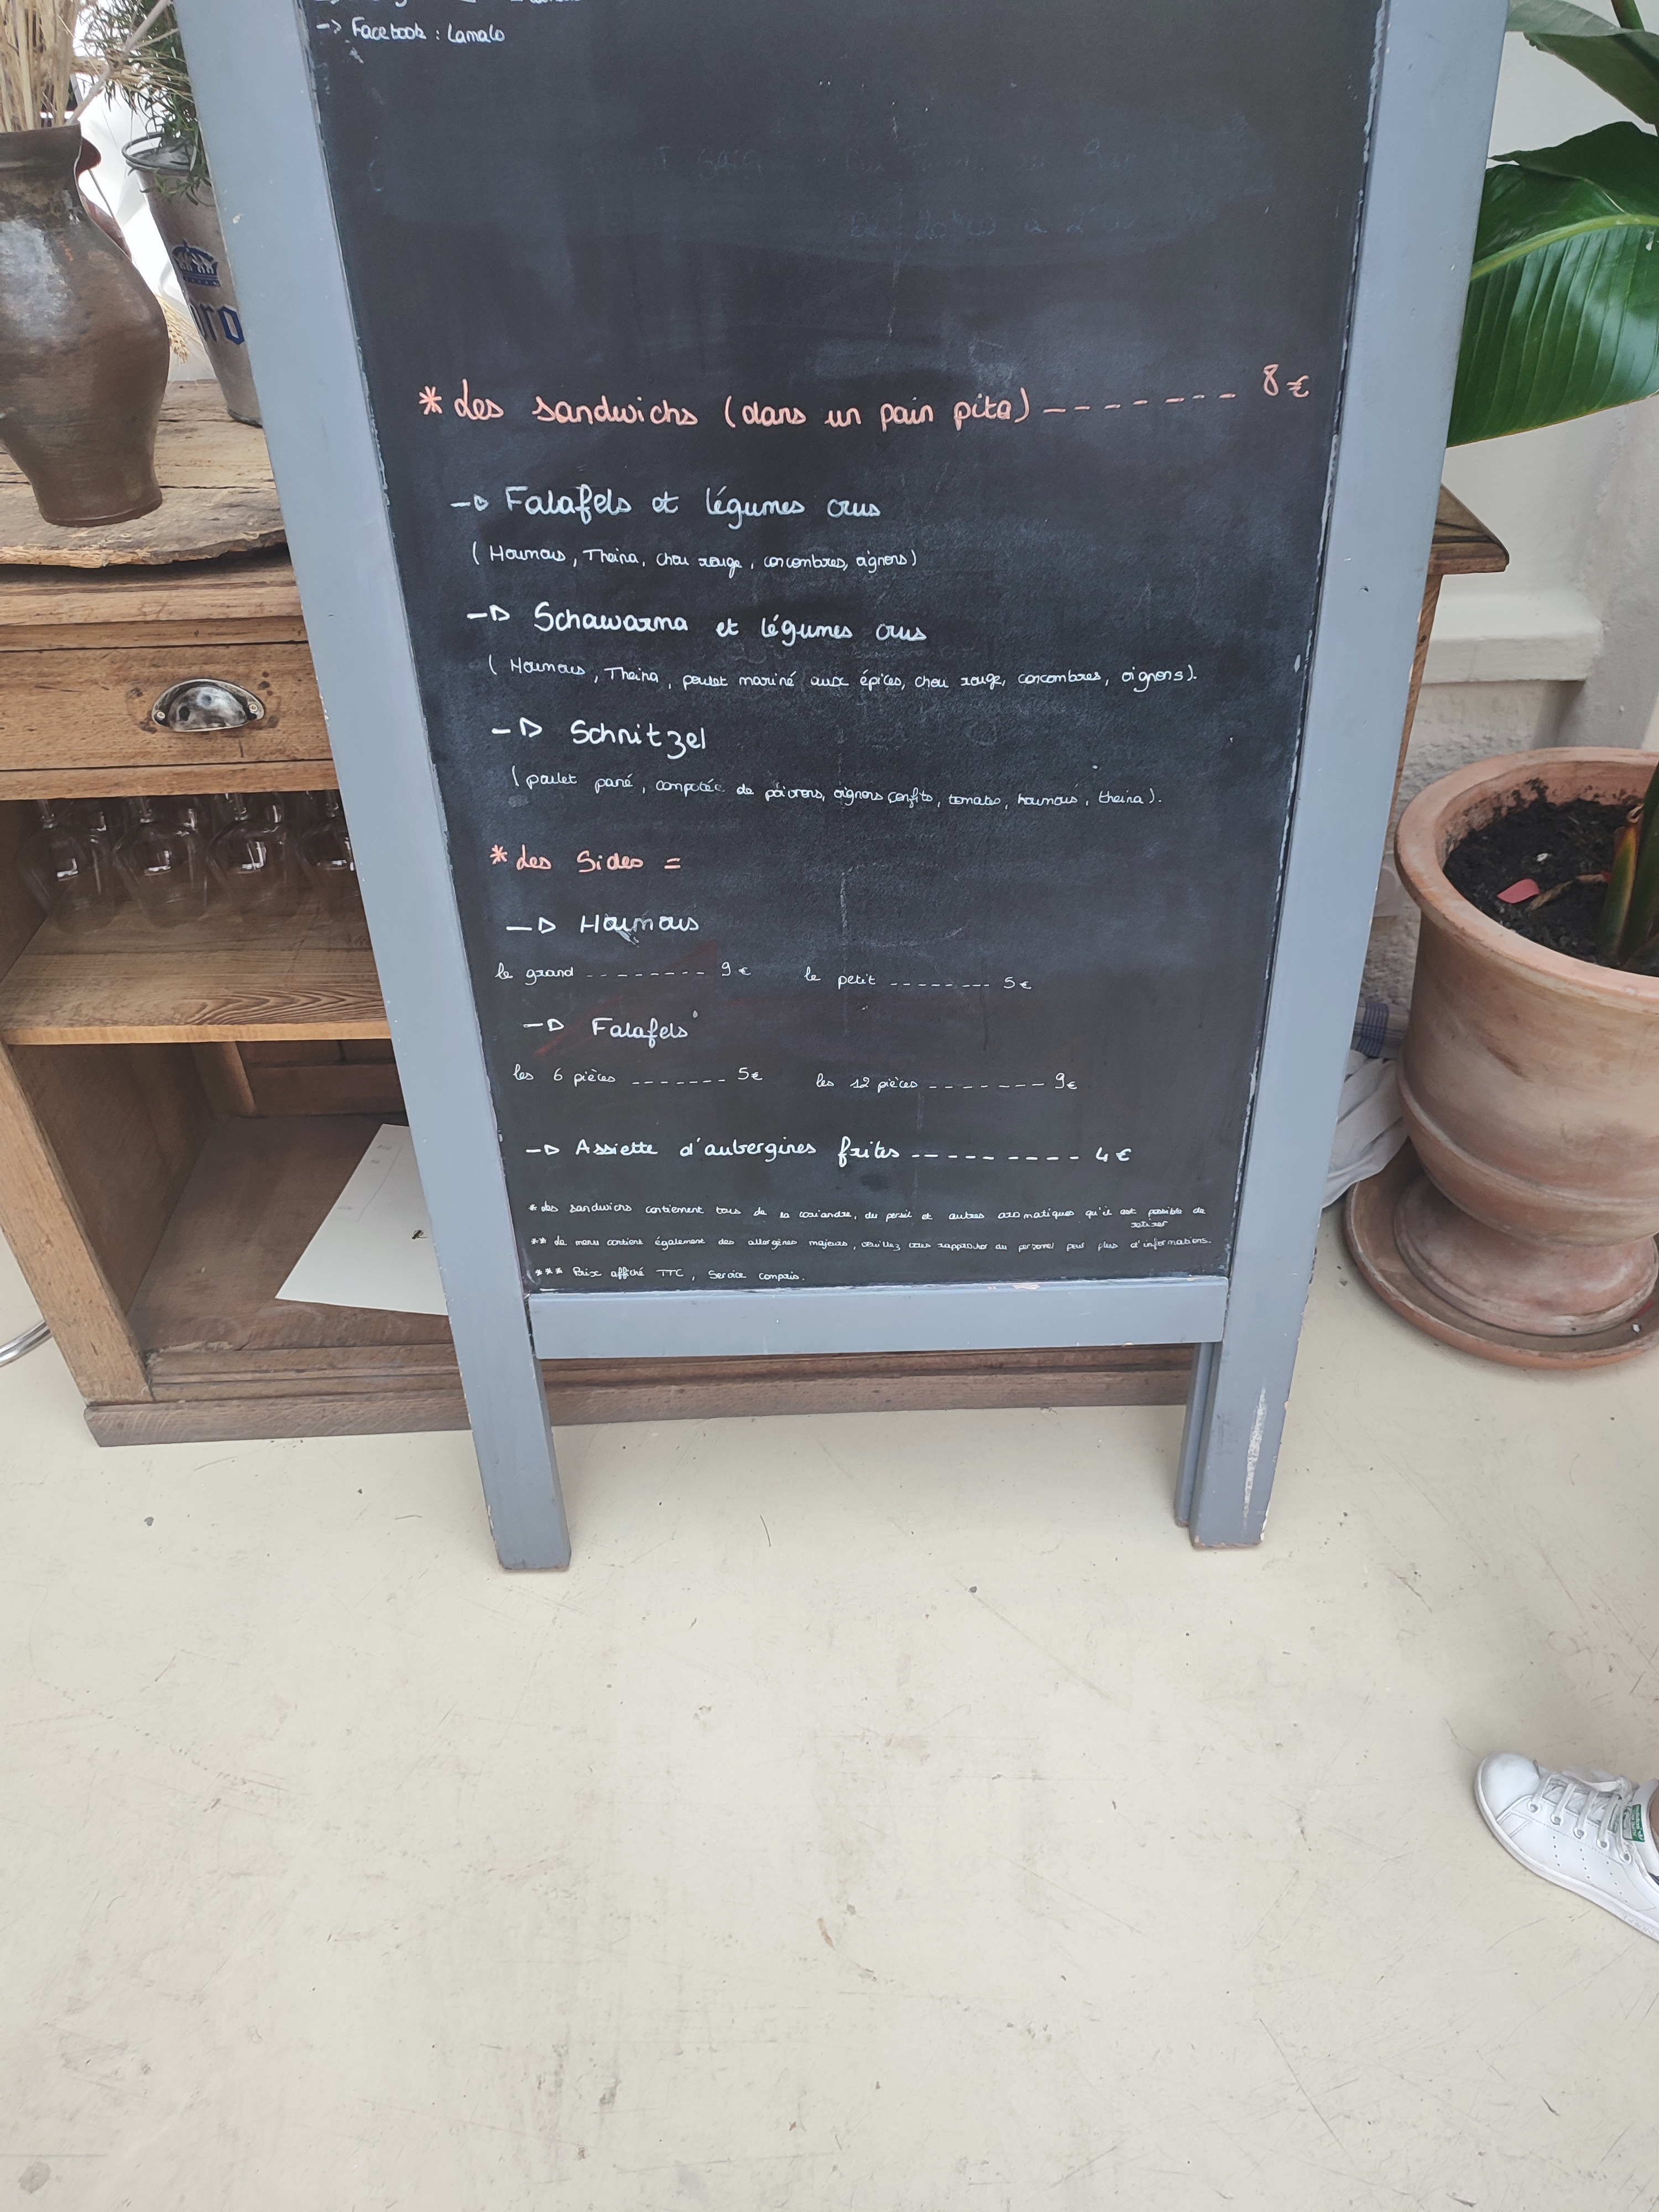 -> Facebook : Lamalo
* Les sandwichs (dans un pain pita) ------- 8€
-> Falafels et légumes crus
( Houmous, Theina, chou rouge, concombres, oignons)
-> Schawarma et légumes crus
( Houmous, Theina, poulet mariné aux épices, chou rouge, concombres, oignons).
-> Schnitzel
( poulet pané, compotée de poivrons, oignons confits, tomates, houmous, theina ).
* Les Sides =
-> Houmous
le grand -------- 9€ le petit ------- 5€
-> Falafels
les 6 pièces ------- 5€ les 12 pièces ------- 9€
-> Assiette d'aubergines frites --------- 4€
* Les sandwichs contiennent tous de la coriandre, du persil et autres aromatiques qu'il est possible de
retirer
** Le menu contient également des allergènes majeurs, veuillez vous rapprocher du personnel pour plus d'informations.
*** Prix affiché TTC, Service compris.